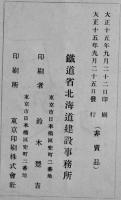 大正十五年九月二十二日印刷
大正十五年九月二十五日發行 (非賣品)
鐵道省北海道建設事務所
東京市日本橋區兜町二番地
印刷者 鈴木憲吉
東京市日本橋區兜町二番地
印刷所 東京印刷株式會社